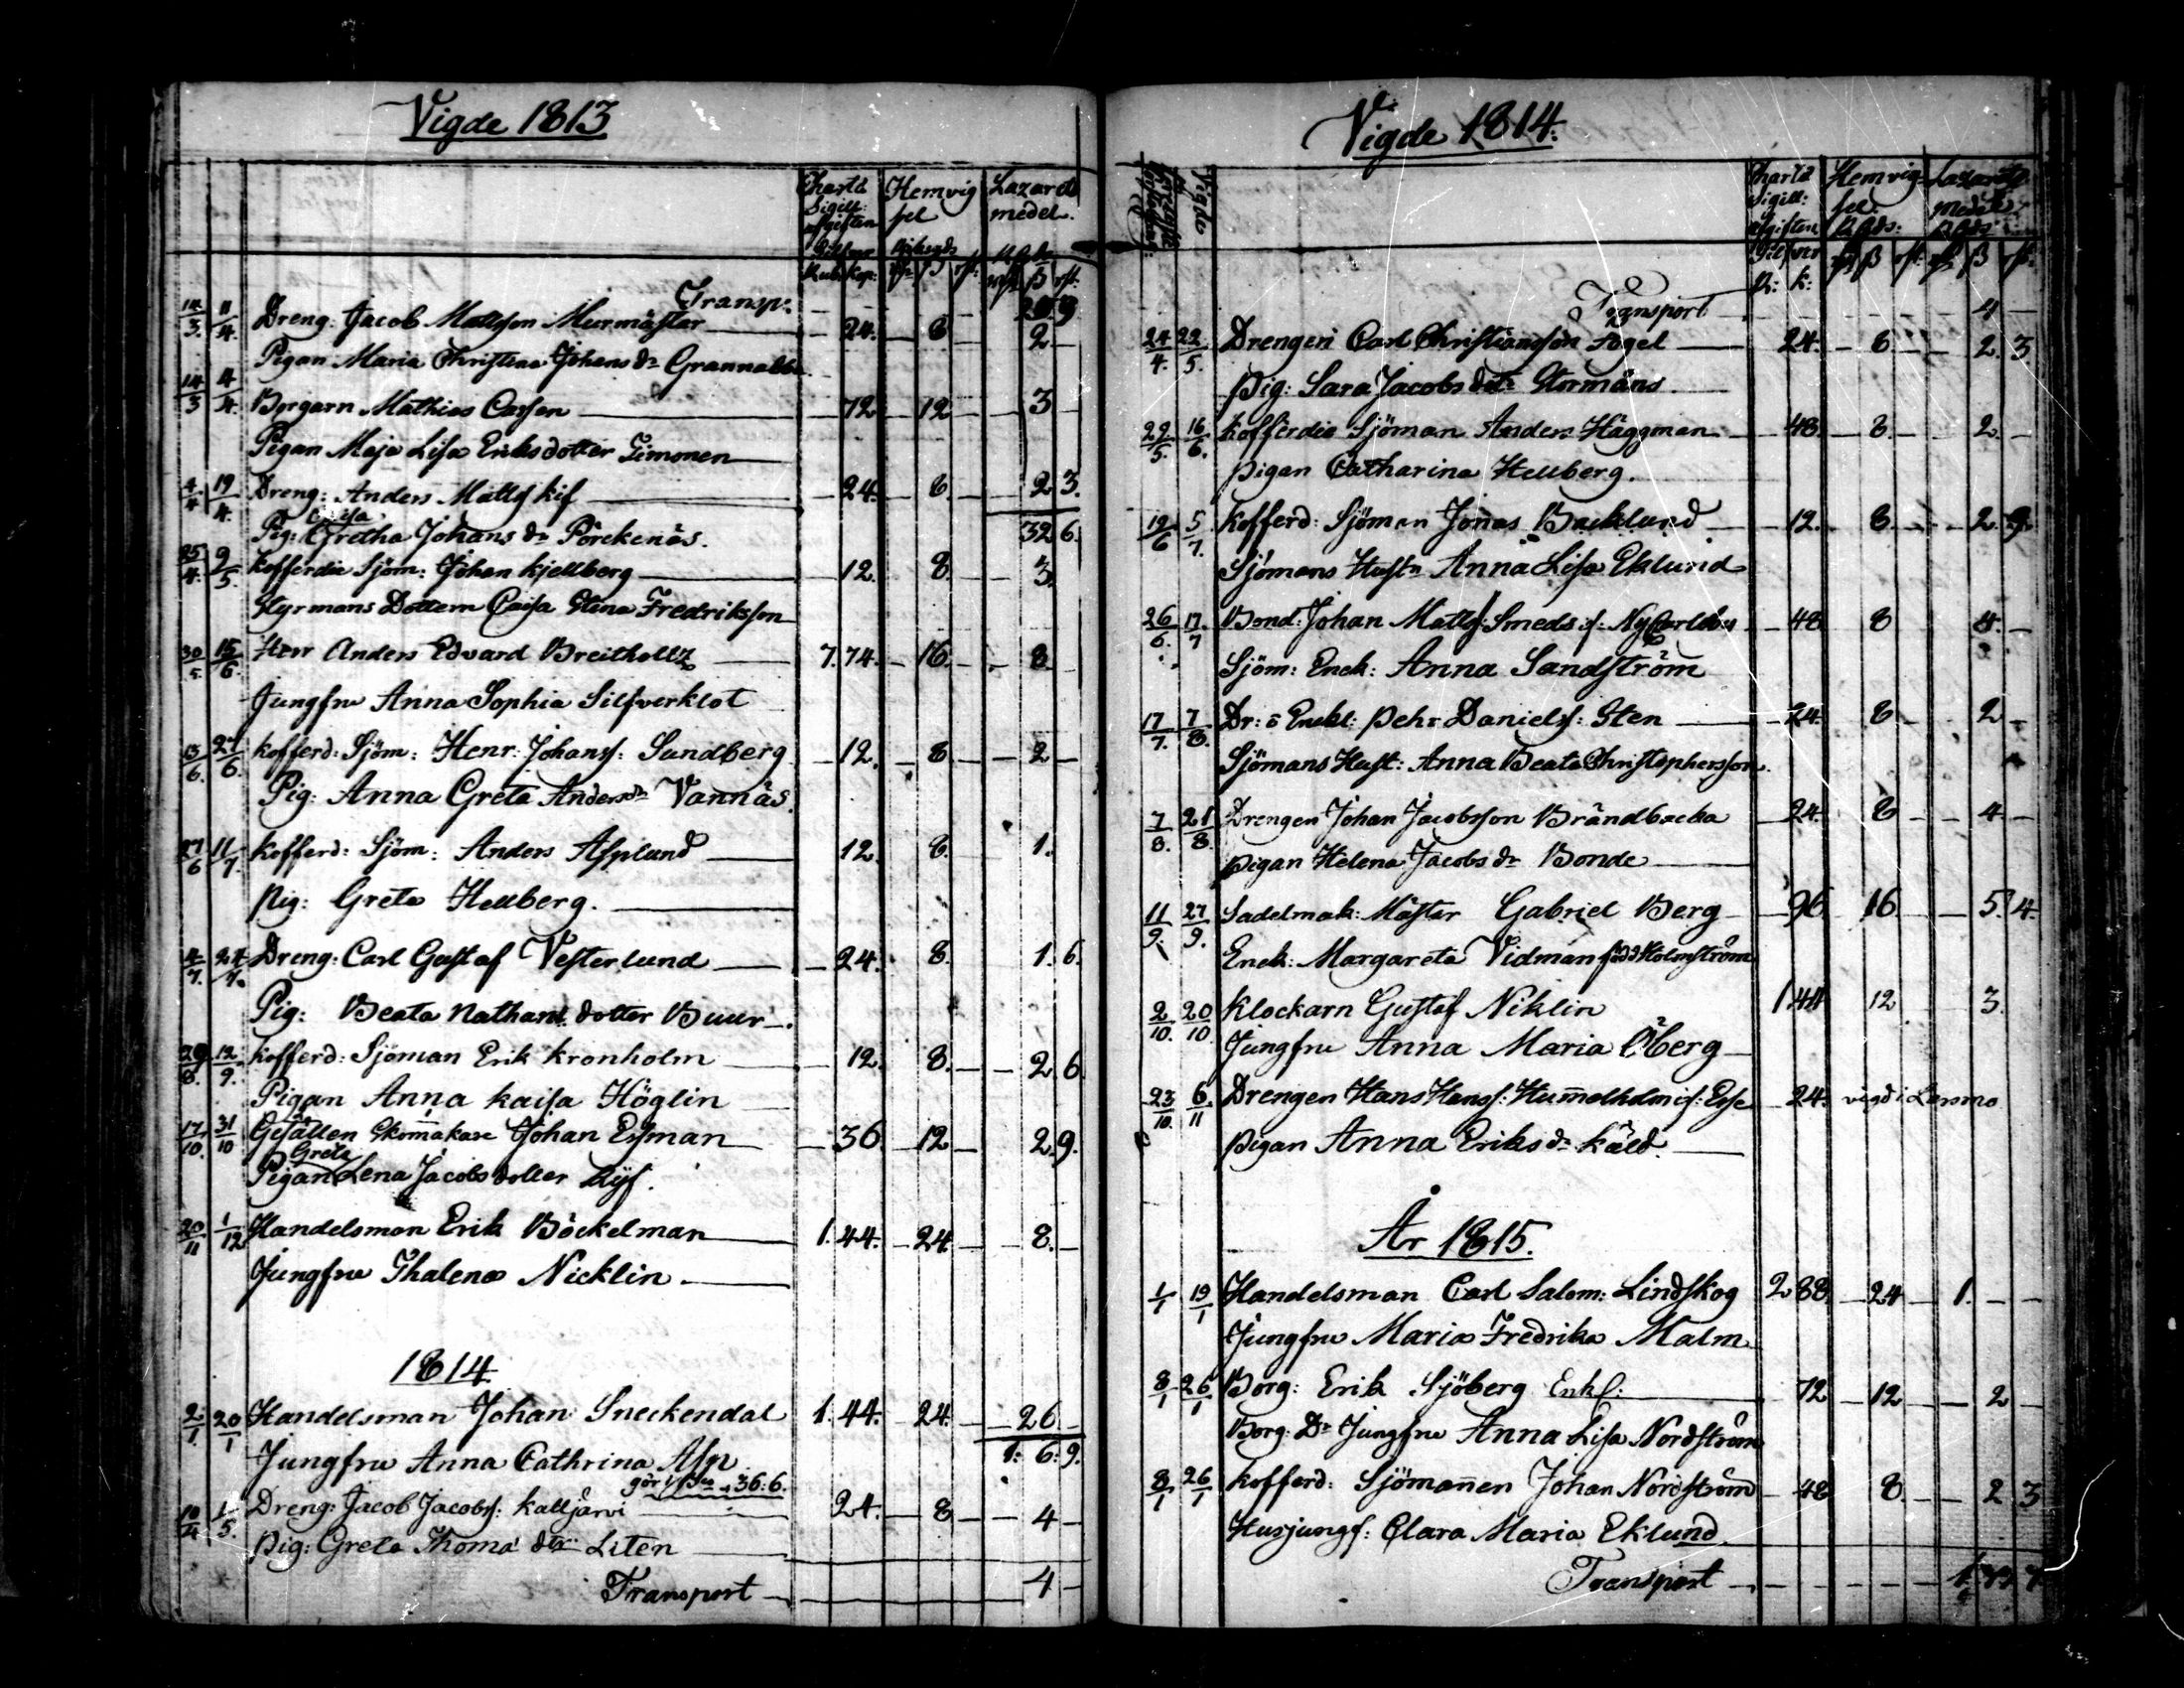 Vigde 1813
Charta Sigill: afgiften Silfver Rub: Kop:
Hemvigsel
Lazaretts medel.
Transp: 20 9
14/3. 11/4. Dreng: Jacob Mattsson Murmästar 24. 8 2.
Pigan Maria Christina Johans dr Grannabba
14/3 4/4. Borgarn Mathias Carlson 72 12 3
Pigan Maja Lisa Eriksdotter Timonen
4/4 19/4. Dreng: Anders Matts: Kif 24. 8 2 3.
Caisa
Pig: Gretha Johans dr Pörckenäs. 32 6.
25/4. 9/5. Kofferdie Sjöm: Johan Kjellberg 12. 8 3.
Styrmans Dottern Caisa Stina Fredriksson
30/5. 15/6. Herr Anders Edvard Breitholtz 7. 74. 16 8
Jungfru Anna Sophia Silfverklot
13/6. 27/6. Kofferd: Sjöm: Henr: Johanss: Sundberg 12. 8 2
Pig: Anna Greta Anders dr Vannäs.
27/6 11/7. Kofferd: Sjöm: Anders Asplund 12. 8. 1.
Pig: Greta Hellberg.
4/7. 24/7. Dreng: Carl Gustaf Vesterlund 24. 8. 1. 6.
Pig: Beata Nathans dotter Buur.
29/8. 12/9. Kofferd: Sjöman Erik Kronholm 12. 8. 2. 6.
Pigan Anna Kaisa Höglin
17/10. 31/10 Gesällen Skomakare Johan Esman 36 12 2. 9.
Greta
Pigan Lena Jacobs dotter Rys.
20/11 1/12 Handelsman Erik Böckelman 1. 44. 24 8.
Jungfru Thalena Nicklin
1814
2/1. 20/1 Handelsman Johan Sneckendal 1. 44. 24. 26
Jungfru Anna Cathrina Asp 1. 6. 9.
gör 36: 6.
10/4 1/5. Dreng: Jacob Jacobss: Kalljärvi 24. 8 4
Pig: Greta Thomæ dtr Liten
Transport 4
Vigde 1814.
Vigde
Charta Sigill: afgiften Silfver R: K:
Hemvigsel R:Gds:
Lazaretts medel R:Gds
Transport 4
24/4. 22/5. Drengen Carl Christiansson Fogel 24. 8. 2. 3
Pig: Sara Jacobs dtr Stormåns
29/5. 16/6. Kofferdie Sjöman Anders Häggman 48 8. 2.
Pigan Catharina Hellberg.
19/6 5/7. Kofferd: Sjöman Jonas Backlund 12. 8. 2 9.
Sjömans Hustr Anna Lisa Eklund
26/6. 17/7 Bond: Johan Matts: Smeds if: NyCarleby 48 8 4.
Sjöm: Enck: Anna Sandström
17/7. 7/8. Dr: o Enkl: Pehr Daniels: Sten 24. 8 2
Sjömans Hust: Anna Beata Christophersson
7/8. 21/8. Drengen Johan Jacobsson Brändbacka 24. 8 4
Pigan Helena Jacobs dr Bonde
11/9. 27/9. Sadelmak: Mäster Gabriel Berg 96. 16 5. 4.
Enck: Margareta Vidman född Holmström
2/10. 20/10 Klockarn Gustaf Niklin 1 44 12 3.
Jungfru Anna Maria Öberg
23/10. 6/11 Drengen Hans Hanss: Hum̄elholm if: Esse 24. vigd i Larsmo
Pigan Anna Eriks dr Käld.
År 1815.
1/1 19/1 Handelsman Carl Salom: Lindskog 2 88. 24 1.
Jungfru Maria Fredrika Malm
8/1 26/1 Borg: Erik Sjöberg Enkl: 72 12 2
Borg: Dr Jungfru Anna Lisa Nordström
8/1 26/1 Kofferd: Sjöman̄en Johan Nordström 48 8. 2. 3
Husjungf: Clara Maria Eklund
Transport